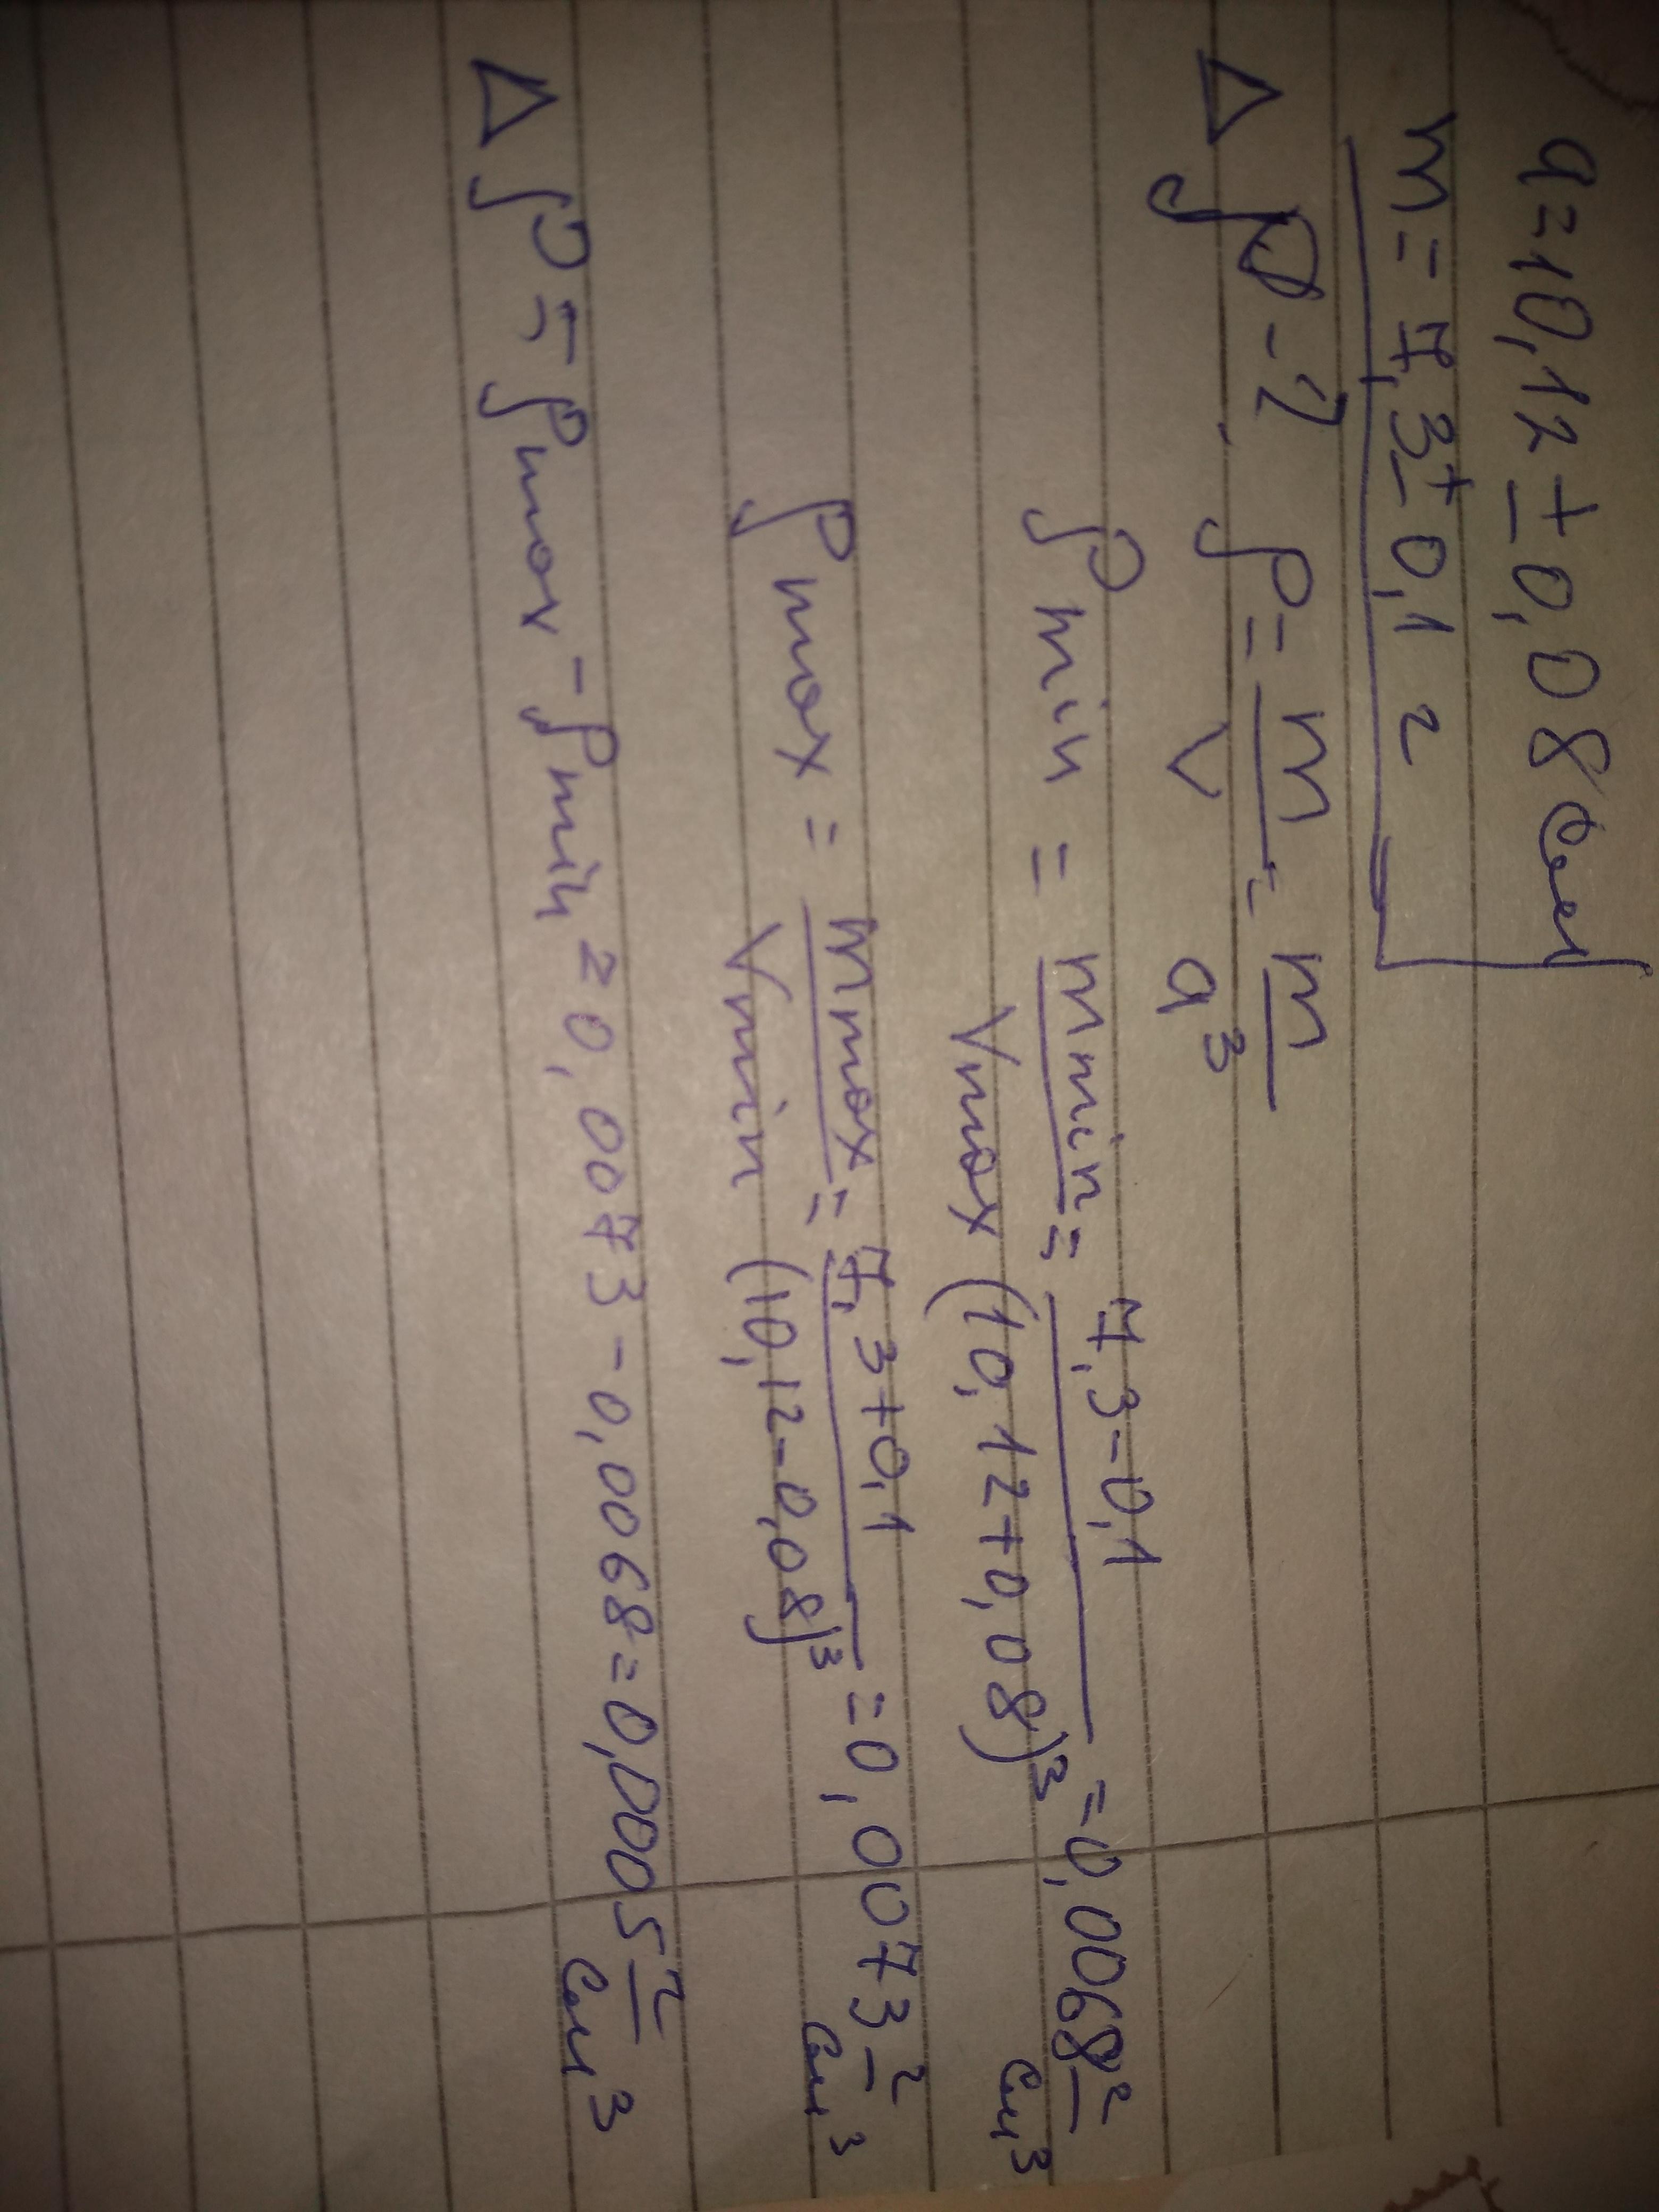 a=10,12±0,08см
m=7,3±0,1 г
Δρ-?
ρ=m/V=m/a³
ρmin = mmin/Vmax = 7,3-0,1/(10,12+0,08)³ =0,0068 г/см³
ρmax = mmax/Vmin = 7,3+0,1/(10,12-0,08)³ =0,0073 г/см³
Δρ = ρmax - ρmin = 0,0073-0,0068=0,0005 г/см³